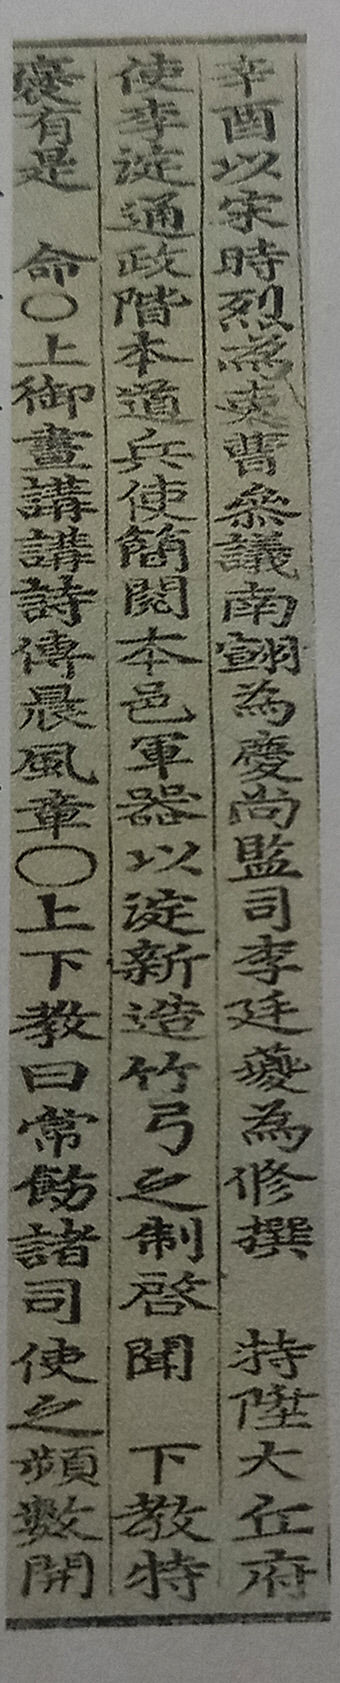 辛酉以宋時烈為吏曹參議南翧為慶尚監司李廷夔為修撰 特陞大丘府
使李淀通政階本道兵使簡閱本邑軍器以淀新造竹弓之制啓聞 下教特
褒有是 命○上御晝講講詩傳晨風章○上下教曰常飭諸司使之頻數開